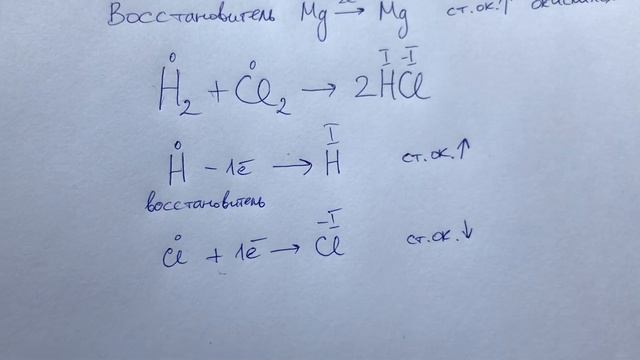 Восстановитель Mg → Mg ст.ок.↑
H₂⁰ + Cl₂⁰ → 2H^I Cl^-I
H⁰ - 1ē → H^I ст.ок.↑
восстановитель
Cl⁰ + 1ē → Cl^-I ст.ок.↓